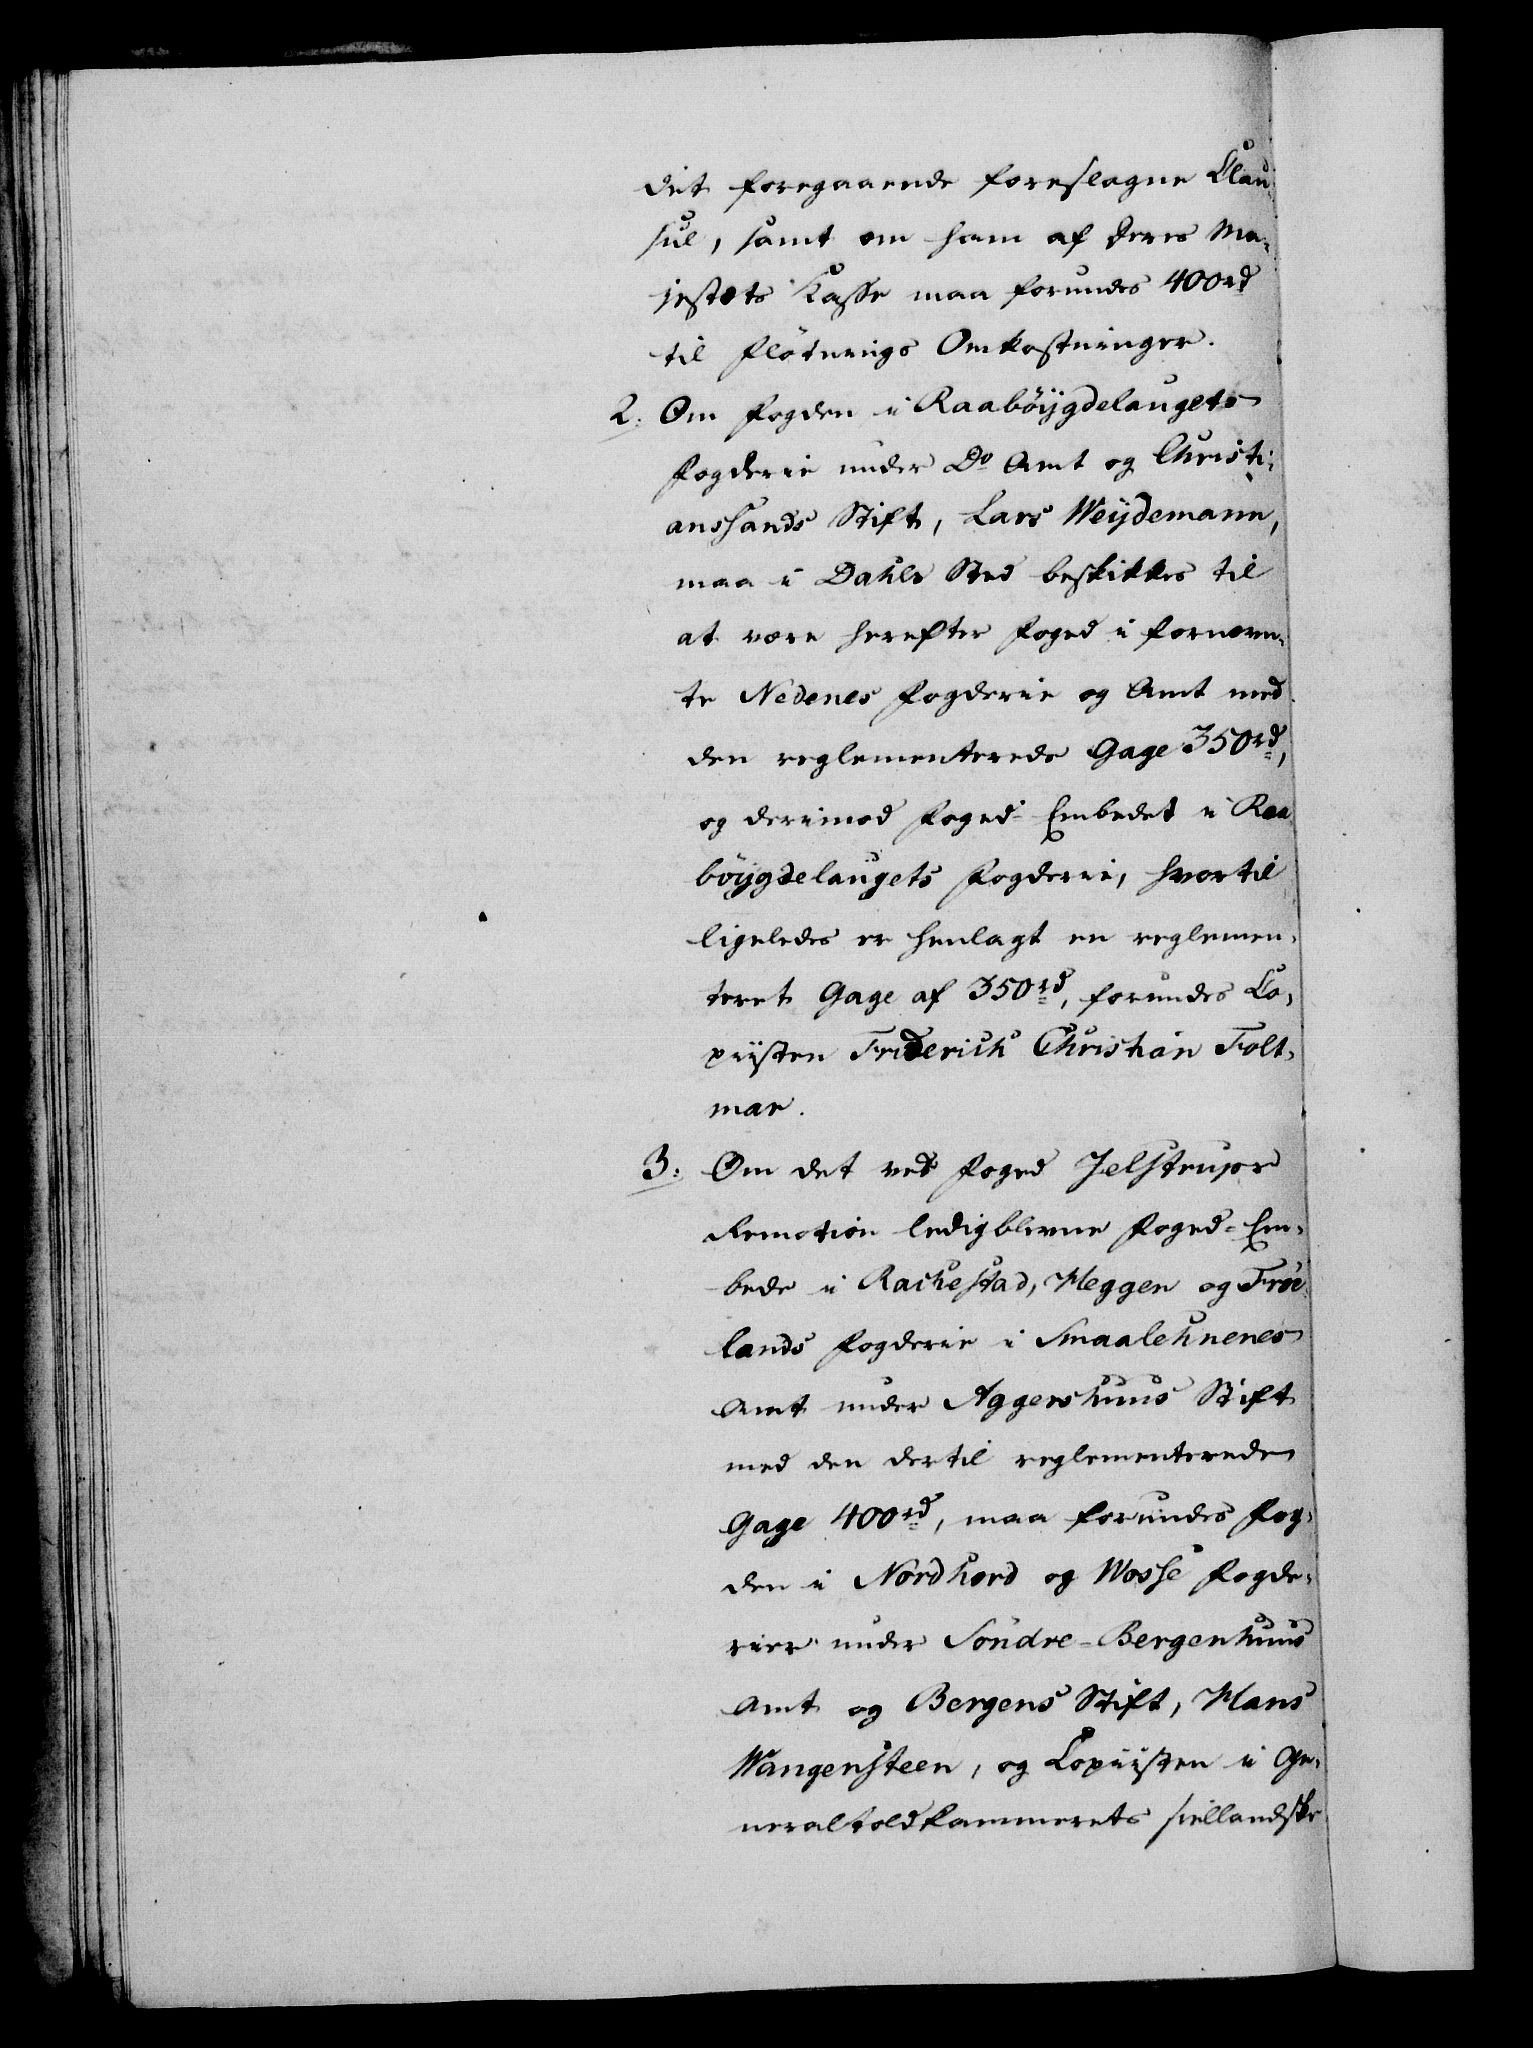 det foregaaende foreslagne Clau-
sul, samt om ham af Deres Ma-
jestæts Kasse maa forundes 400rd
til Flötnings Omkostninger.
2. Om Fogden i Raabÿgdelaugets
Fogderie under Do Amt og Christi-
anssands Stift, Lars Weÿdemann,
maa i Dahls Sted beskikkes til
at være herefter Foged i fornævn-
te Nedenes Fogderie og Amt med
den reglementerede Gage 350rd,
og derimod Foged-Embedet i Raa
böÿgdelaugets Fogderie, hvortil
ligeledes er henlagt en reglemen-
teret Gage af 350rd, forundes Co-
piisten Friderich Christian Folt-
mar.
3. Om det ved Foged Jelstrups
Remotion ledigblevne Foged-Em-
bede i Rachestad, Heggen og Fröe-
lands Fogderie i Smaalehnenes
Amt under Aggershuus Stift
med den dertil reglementerede
Gage 400rd, maa forundes Fog-
den i Nordhord og Wosse Fogde-
rier under Söndre-Bergenhuus
Amt og Bergens Stift, Hans
Wangensteen, og Copiisten i Ge-
neraltoldkammerets siellandske